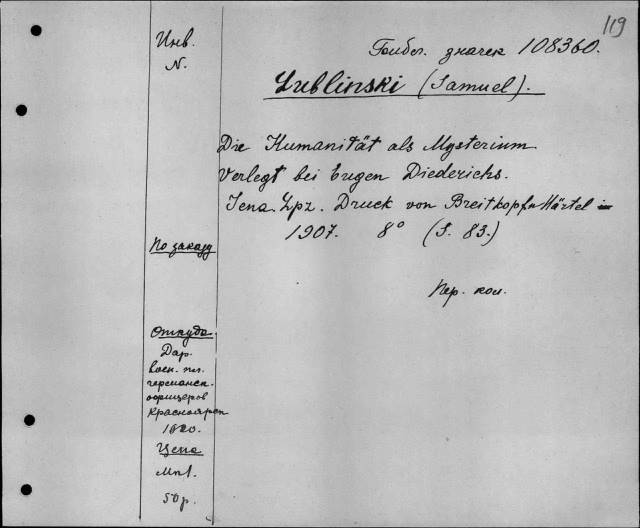 119
Инв.
N.
Гоибл. значек 108360.
Lublinski (Samuel).
Die Humanität als Mysterium
Verlegt bei Eugen Diederichs.
Jena. Lpz. Druck von Breitkopf u Härtel
1907. 8° (S. 83.)
По заказу
Пер. кол.
Откуда.
Дар.
воен. пл.
германск.
офицеров
Красноярск
1920.
Цена
50 р.